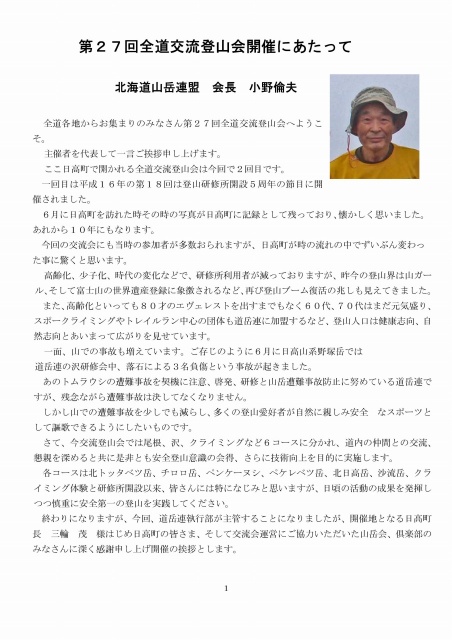 第２７回全道交流登山会開催にあたって
北海道山岳連盟　会長　小野倫夫
全道各地からお集まりのみなさん第２７回全道交流登山会へようこ
そ。
主催者を代表して一言ご挨拶申し上げます。
ここ日高町で開かれる全道交流登山会は今回で２回目です。
一回目は平成１６年の第１８回は登山研修所開設５周年の節目に開
催されました。
６月に日高町を訪れた時その時の写真が日高町に記録として残っており、懐かしく思いました。
あれから１０年にもなります。
今回の交流会にも当時の参加者が多数おられますが、日高町が時の流れの中でずいぶん変わっ
た事に驚くと思います。
高齢化、少子化、時代の変化などで、研修所利用者が減っておりますが、昨今の登山界は山ガー
ル、そして富士山の世界遺産登録に象徴されるなど、再び登山ブーム復活の兆しも見えてきました。
また、高齢化といっても８０才のエヴェレストを出すまでもなく６０代、７０代はまだ元気盛り、
スポークライミングやトレイルラン中心の団体も道岳連に加盟するなど、登山人口は健康志向、自
然志向とあいまって広がりを見せています。
一面、山での事故も増えています。ご存じのように６月に日高山系野塚岳では
道岳連の沢研修会中、落石による３名負傷という事故が起きました。
あのトムラウシの遭難事故を契機に注意、啓発、研修と山岳遭難事故防止に努めている道岳連で
すが、残念ながら遭難事故は決してなくなりません。
しかし山での遭難事故を少しでも減らし、多くの登山愛好者が自然に親しみ安全　なスポーツと
して謳歌できるようにしたいものです。
さて、今交流登山会では尾根、沢、クライミングなど６コースに分かれ、道内の仲間との交流、
懇親を深めると共に是非とも安全登山意識の会得、さらに技術向上を目的に実施します。
各コースは北トッタベツ岳、チロロ岳、ペンケーヌシ、ペケレベツ岳、北日高岳、沙流岳、クラ
イミング体験と研修所開設以来、皆さんには特になじみと思いますが、日頃の活動の成果を発揮し
つつ慎重に安全第一の登山を実践してください。
終わりになりますが、今回、道岳連執行部が主管することになりましたが、開催地となる日高町
長　三輪　茂　様はじめ日高町の皆さま、そして交流会運営にご協力いただいた山岳会、倶楽部の
みなさんに深く感謝申し上げ開催の挨拶とします。
1